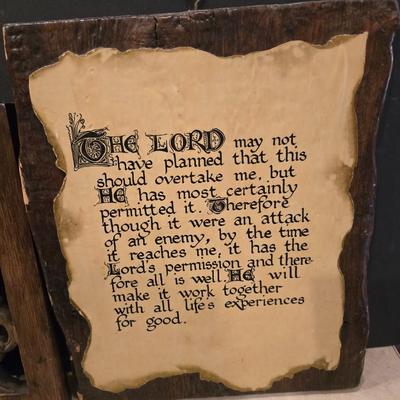 THE LORD may not
have planned that this
should overtake me, but
HE has most certainly
permitted it. Therefore
though it were an attack
of an enemy, by the time
it reaches me, it has the
Lord's permission and there-
fore all is well. HE will
make it work together
with all life's experiences
for good.